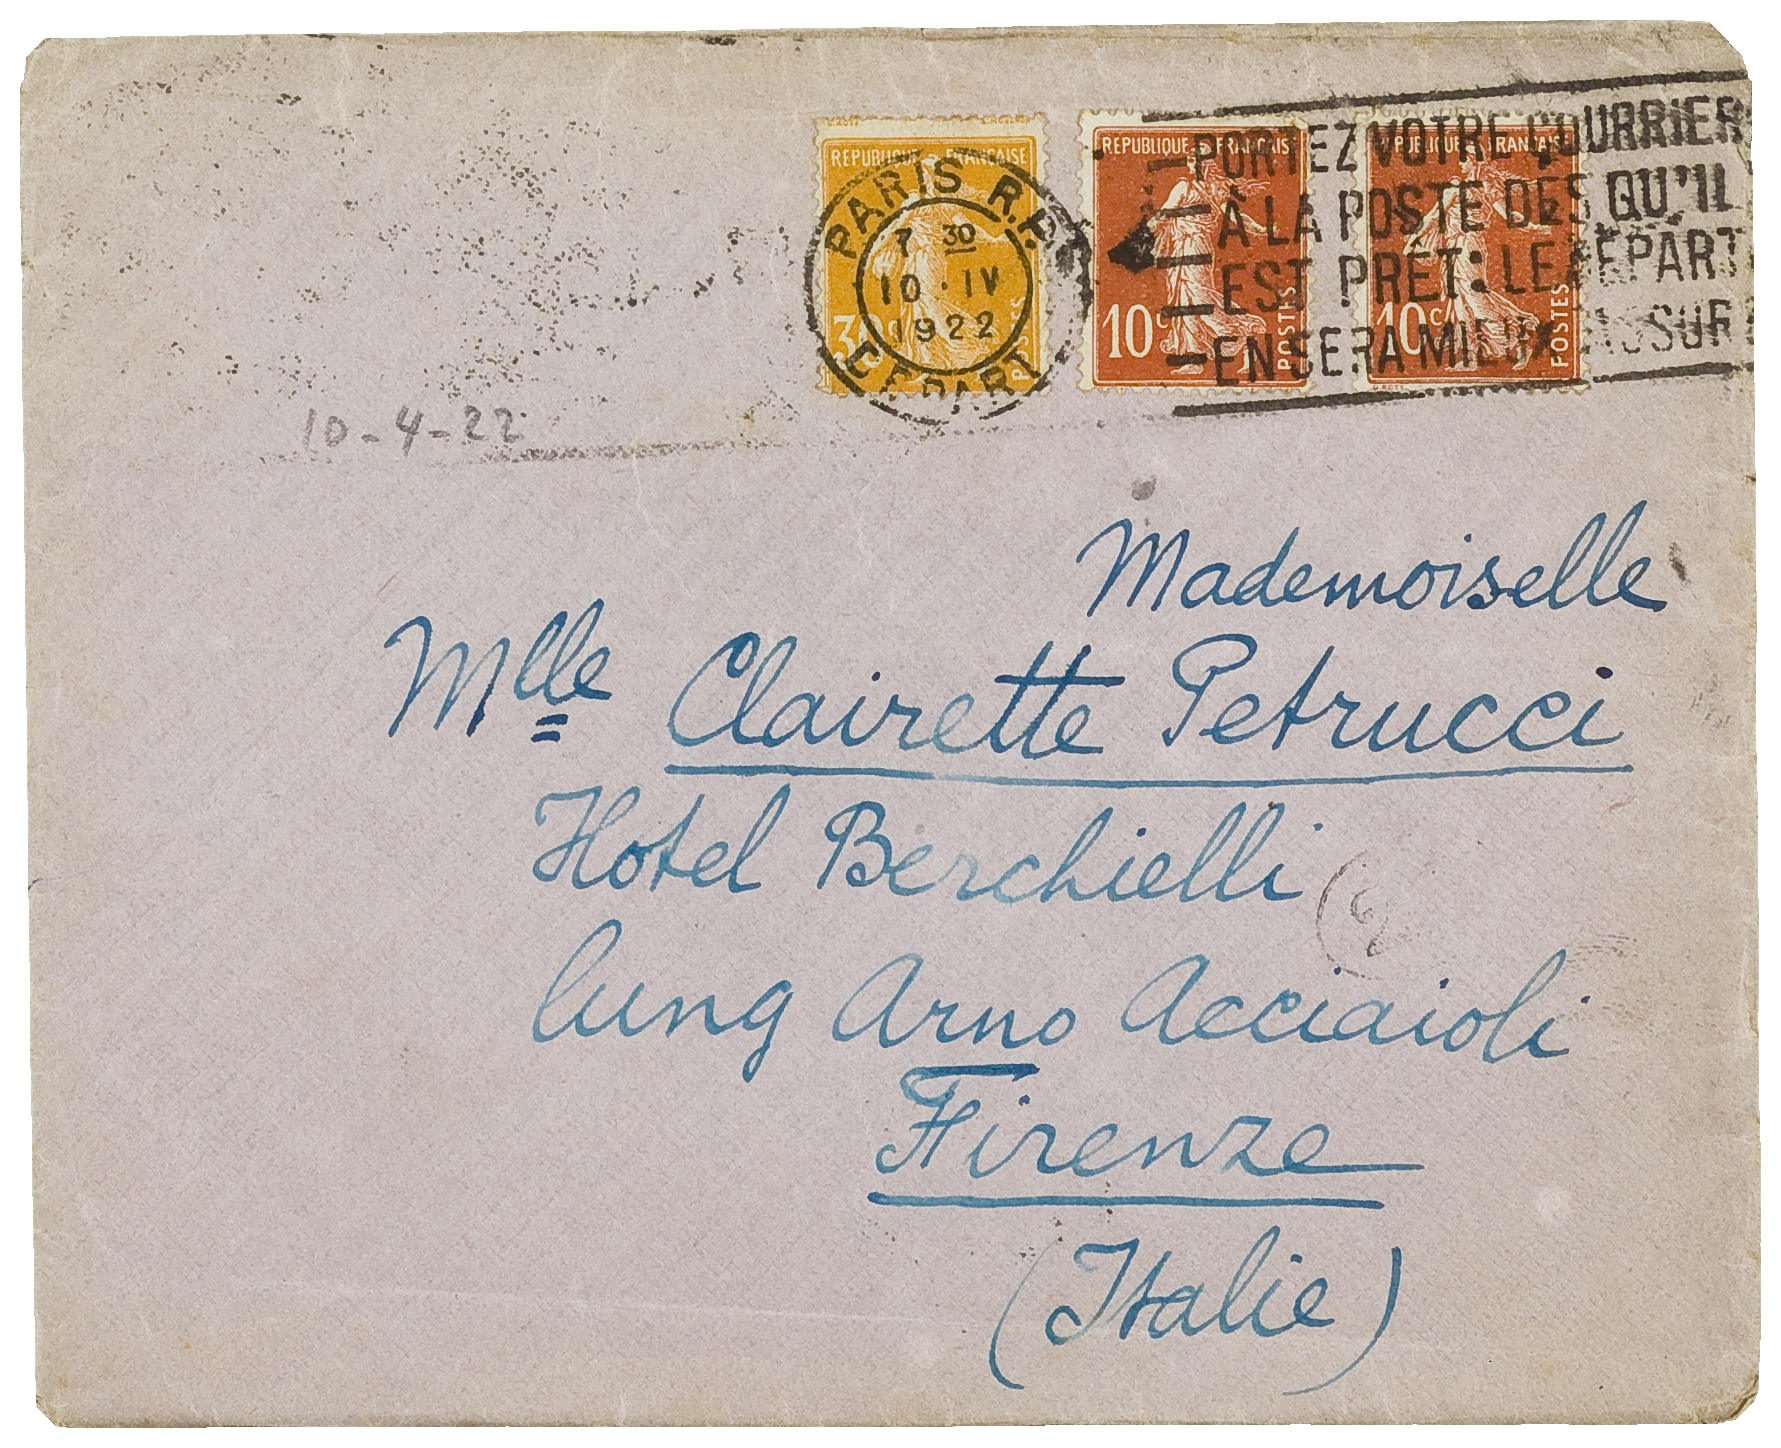 REPUBLIQUE FRANÇAISE
30c
POSTES
PARIS R.P.
7 30
10 · IV
1922
DEPART
REPUBLIQUE FRANÇAIS
10c
POSTES
REPUBLIQUE FRANÇAIS
10c
POSTES
PORTEZ VOTRE COURRIER
À LA POSTE DÈS QU'IL
EST PRÊT: LE DÉPART
EN SERA MIEUX ASSURÉ
10-4-22
Mademoiselle
Mlle Clairette Petrucci
Hotel Berchielli
lung Arno Acciaioli
Firenze
(Italie)